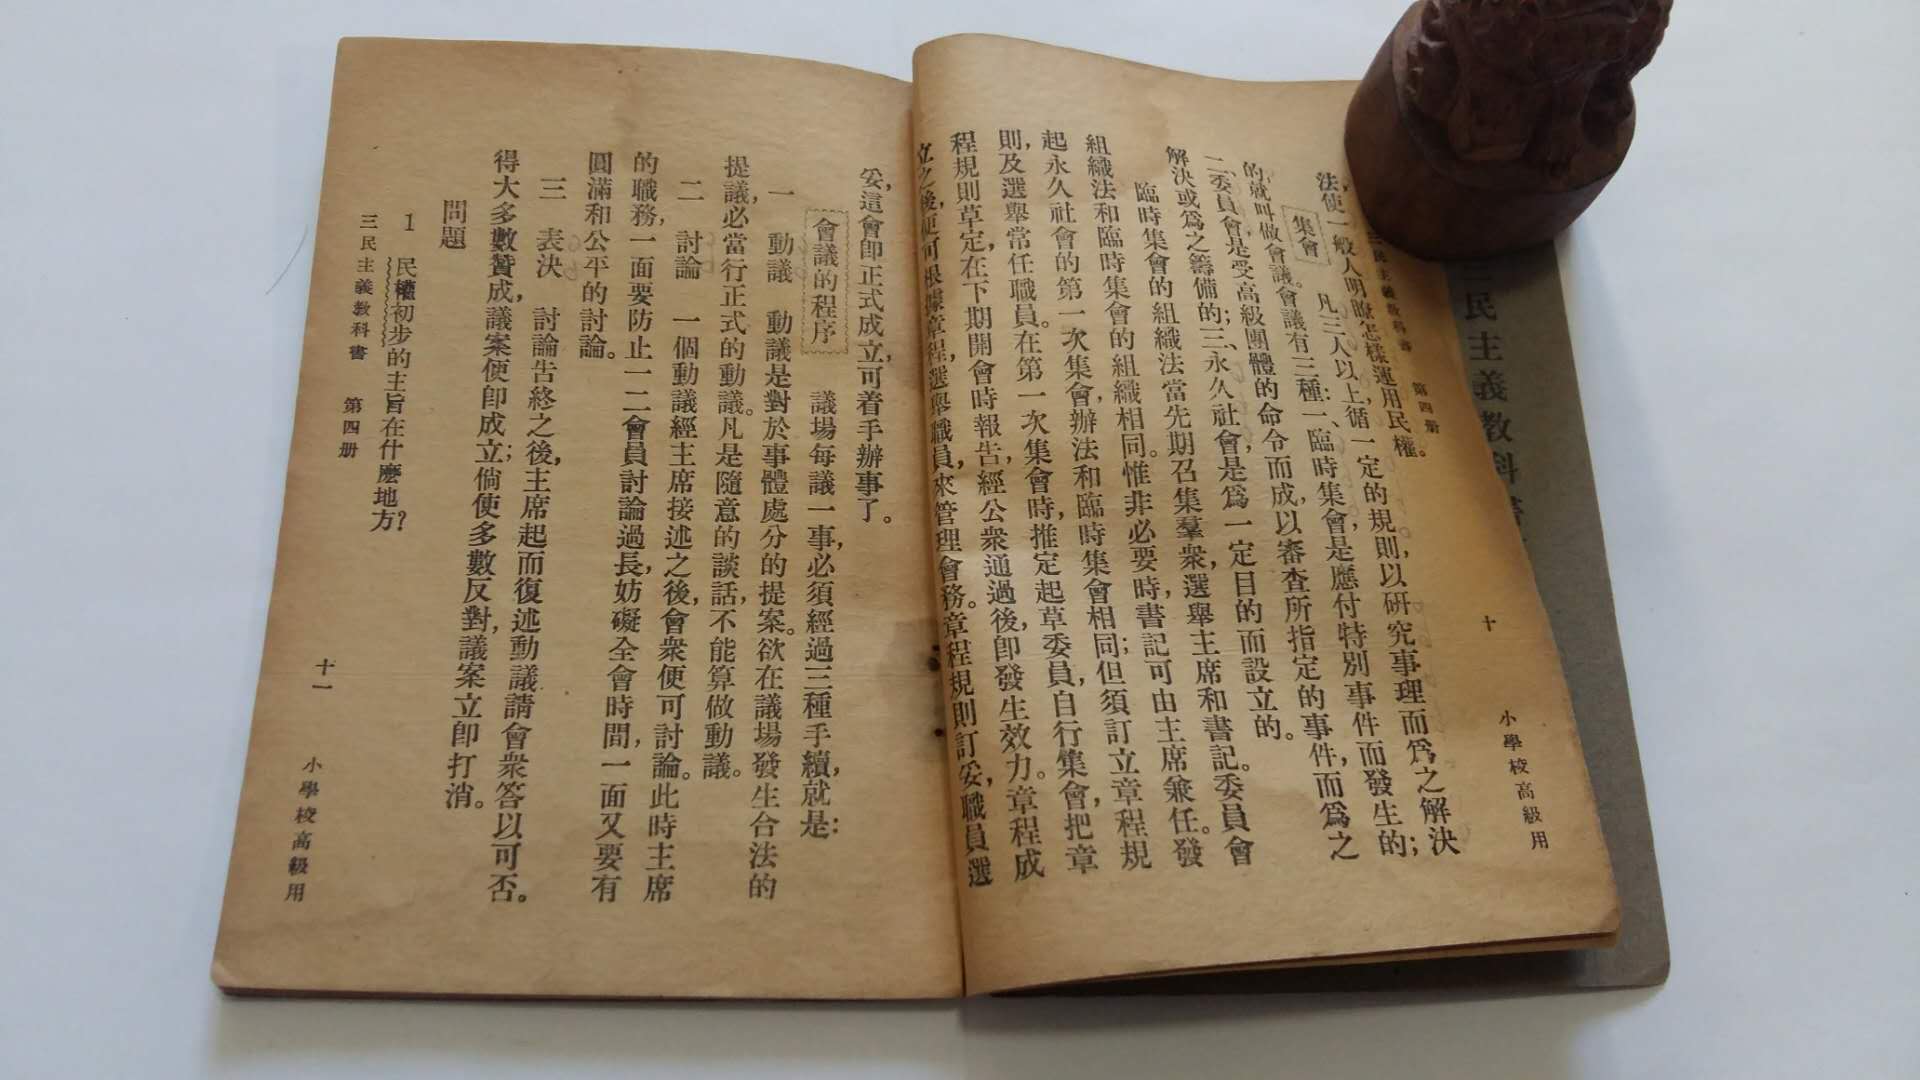 三民主義教科書
三民主義教科書 第四册 十 小學校高級用
法,使一般人明瞭怎樣運用民權。
集會 凡三人以上循一定的規則,以研究事理而爲之解決
的,就叫做會議。會議有三種:一、臨時集會,是應付特別事件而發生的;
二、委員會,是受高級團體的命令而成,以審查所指定的事件,而爲之
解決或爲之籌備的;三、永久社會,是爲一定目的而設立的。
臨時集會的組織法,當先期召集羣衆,選舉主席和書記。委員會
組織法和臨時集會的組織相同。惟非必要時,書記可由主席兼任。發
起永久社會的第一次集會,辦法和臨時集會相同;但須訂立章程規
則,及選舉常任職員。在第一次集會時,推定起草委員,自行集會,把章
程規則草定,在下期開會時報告,經公衆通過後,卽發生效力。章程成
立之後,便可根據章程,選舉職員,來管理會務。章程規則訂妥,職員選
妥,這會卽正式成立,可着手辦事了。
會議的程序 議場每議一事,必須經過三種手續,就是:
一 動議 動議是對於事體處分的提案。欲在議場發生合法的
提議,必當行正式的動議。凡是隨意的談話,不能算做動議。
二 討論 一個動議經主席接述之後,會衆便可討論。此時主席
的職務,一面要防止一二會員討論過長,妨礙全會時間,一面又要有
圓滿和公平的討論。
三 表決 討論告終之後,主席起而復述動議,請會衆答以可否。
得大多數贊成,議案便卽成立;倘使多數反對,議案立卽打消。
問題
1 民權初步的主旨在什麽地方?
三民主義教科書 第四册 十一 小學校高級用